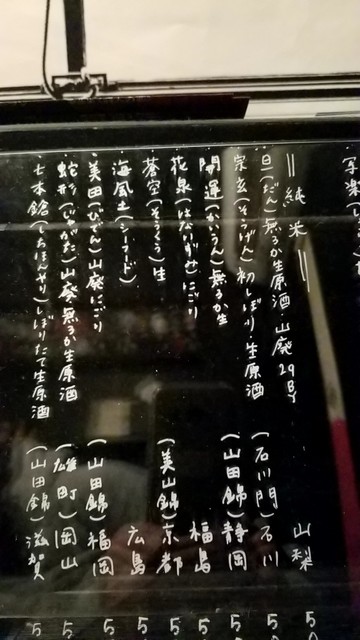 写楽
純米
旦(だん)無ろか生原酒・山廃29BY 山梨 5
宗玄(そうげん)初しぼり生原酒 (石川門)石川 5
開運(かいうん)無ろか生 (山田錦)静岡 5
花泉(はないずみ)にごり 福島 5
蒼空(そうくう)生 (美山錦)京都 5
海風土(シーフード) 広島 5
美田(びでん)山廃にごり (山田錦)福岡 5
蛇形(じゃがた)山廃無ろか生原酒 (雄町)岡山 5
七本鎗(しちほんやり)しぼりたて生原酒 (山田錦)滋賀 5